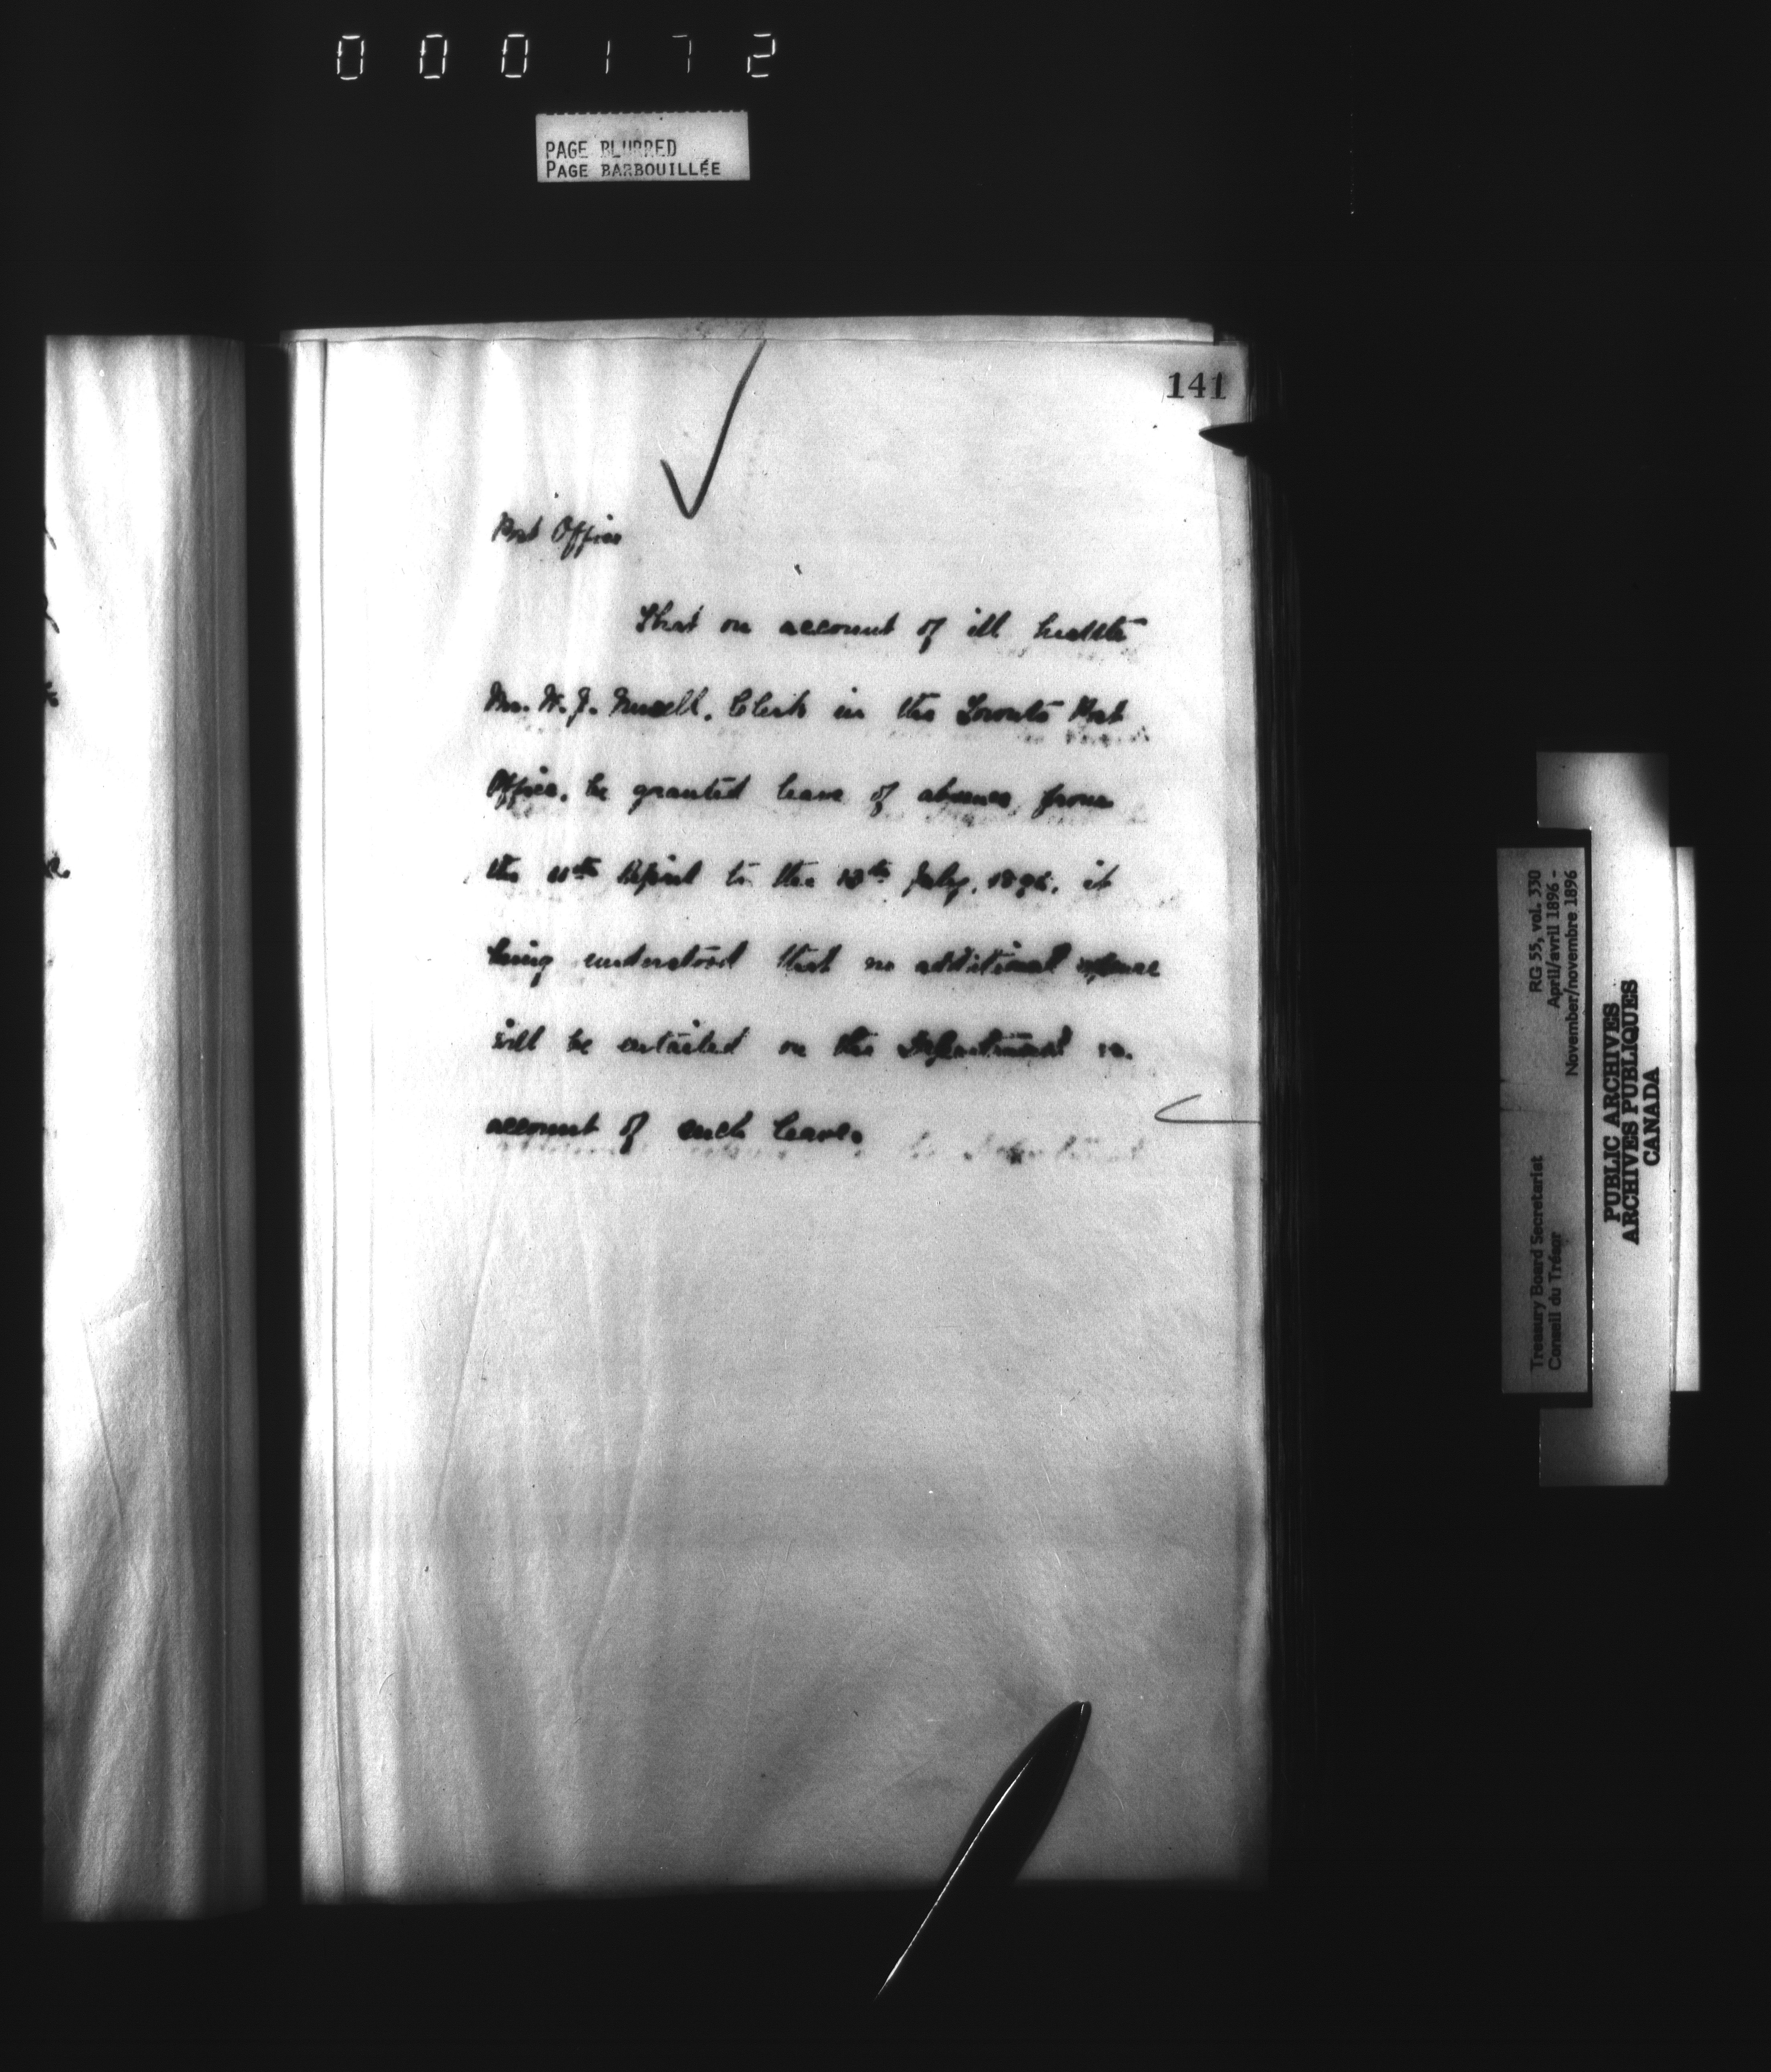 000172
PAGE BLURRED
PAGE BARBOUILLÉE
141
Post Office
That on account of ill health
Mr. W. J. Clerk in the Toronto Post
Office, be granted leave of absence from
the 11th April to the 10th July, 1896, it
being understood that no additional expense
will be entailed on the Department on
account of such leave.
Treasury Board Secretariat RG 55, vol. 330
Conseil du Trésor April/avril 1896 -
November/novembre 1896
PUBLIC ARCHIVES
ARCHIVES PUBLIQUES
CANADA